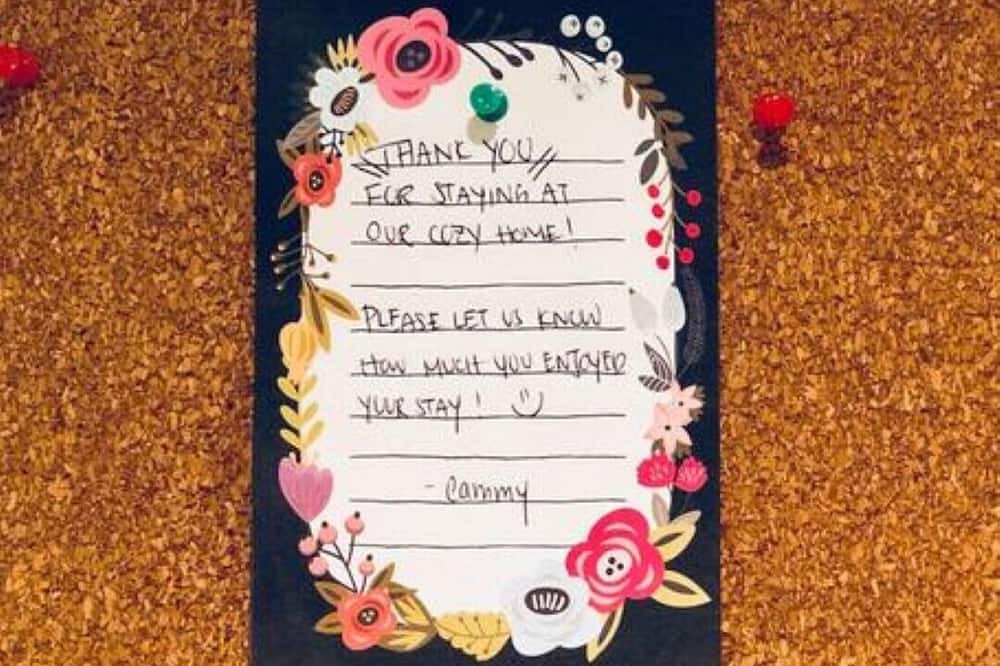 \\THANK YOU//
FOR STAYING AT
OUR COZY HOME!
PLEASE LET US KNOW
HOW MUCH YOU ENJOYED
YOUR STAY! :)
- Cammy